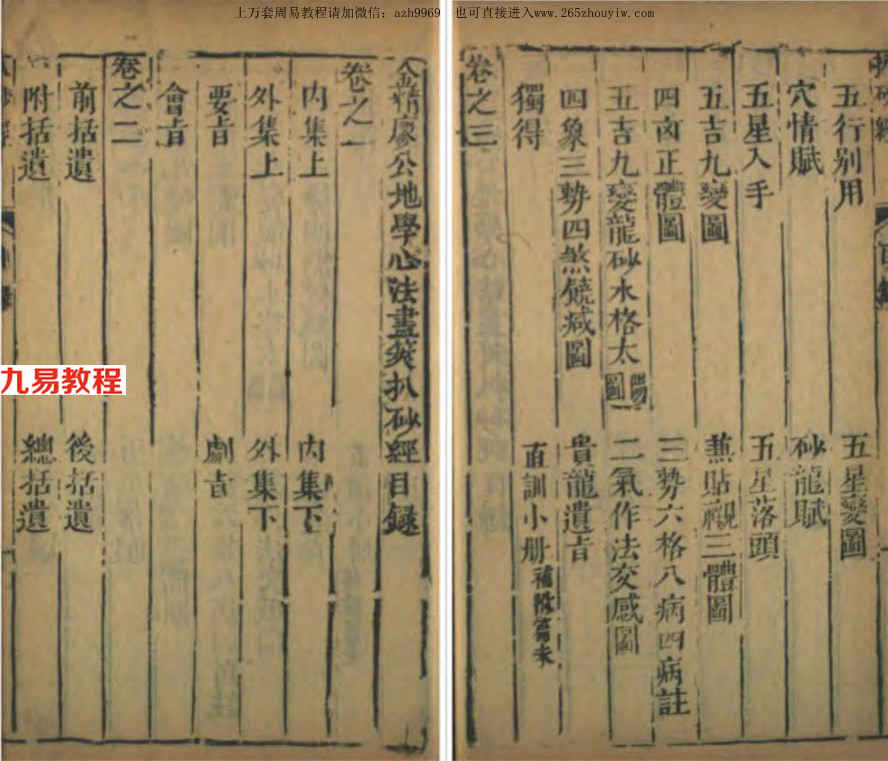 上万套周易教程请加微信：azh9969 也可直接进入www.265zhouyiw.com
金精廖公地學心法畫筴扒砂經目録
卷之一
内集上 内集下
外集上 外集下
要旨 劇旨
會旨
卷之二
前括遺 後括遺
附括遺 總括遺
九易教程
五行别用 五星變圖
穴情賦 砂龍賦
五星入手 五星落頭
五吉九變圖 兼貼襯三體圖
四凶正體圖 三勢六格八病四病註
五吉九變龍砂水格太陽圖 二氣作法交感圖
四象三勢四煞饒减圖 貴龍遺旨
獨得 直訓小册
卷之三